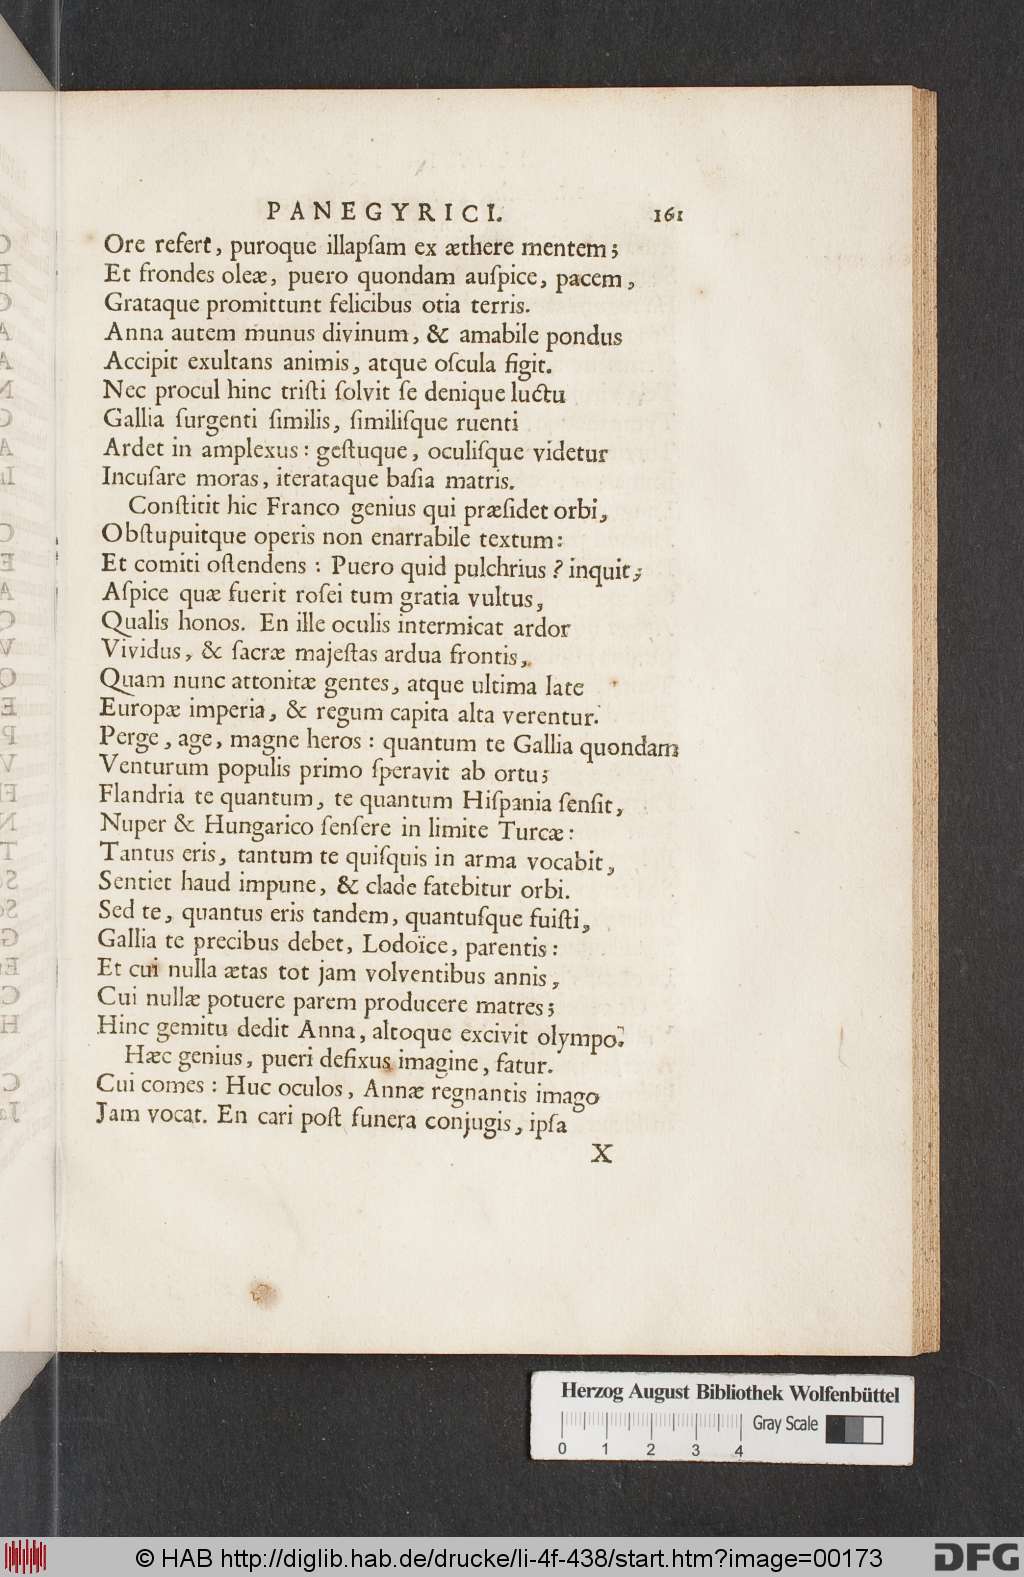 PANEGYRICI. 161
Ore refert, puroque illapſam ex æthere mentem;
Et frondes oleæ, puero quondam auſpice, pacem,
Grataque promittunt felicibus otia terris.
Anna autem munus divinum, & amabile pondus
Accipit exultans animis, atque oſcula figit.
Nec procul hinc triſti ſolvit ſe denique luctu
Gallia ſurgenti ſimilis, ſimiliſque ruenti
Ardet in amplexus: geſtuque, oculiſque videtur
Incuſare moras, iterataque baſia matris.
Conſtitit hic Franco genius qui præſidet orbi,
Obſtupuitque operis non enarrabile textum:
Et comiti oſtendens: Puero quid pulchrius? inquit;
Aſpice quæ fuerit roſei tum gratia vultus,
Qualis honos. En ille oculis intermicat ardor
Vividus, & ſacræ majeſtas ardua frontis,
Quam nunc attonitæ gentes, atque ultima late
Europæ imperia, & regum capita alta verentur.
Perge, age, magne heros: quantum te Gallia quondam
Venturum populis primo ſperavit ab ortu;
Flandria te quantum, te quantum Hiſpania ſenſit,
Nuper & Hungarico ſenſere in limite Turcæ:
Tantus eris, tantum te quiſquis in arma vocabit,
Sentiet haud impune, & clade fatebitur orbi.
Sed te, quantus eris tandem, quantuſque fuiſti,
Gallia te precibus debet, Lodoïce, parentis:
Et cui nulla ætas tot jam volventibus annis,
Cui nullæ potuere parem producere matres;
Hinc gemitu dedit Anna, altoque excivit olympo.
Hæc genius, pueri defixus imagine, fatur.
Cui comes: Huc oculos, Annæ regnantis imago
Jam vocat. En cari poſt funera conjugis, ipſa
X
Herzog August Bibliothek Wolfenbüttel
Gray Scale
0 1 2 3 4
© HAB http://diglib.hab.de/drucke/li-4f-438/start.htm?image=00173
DFG